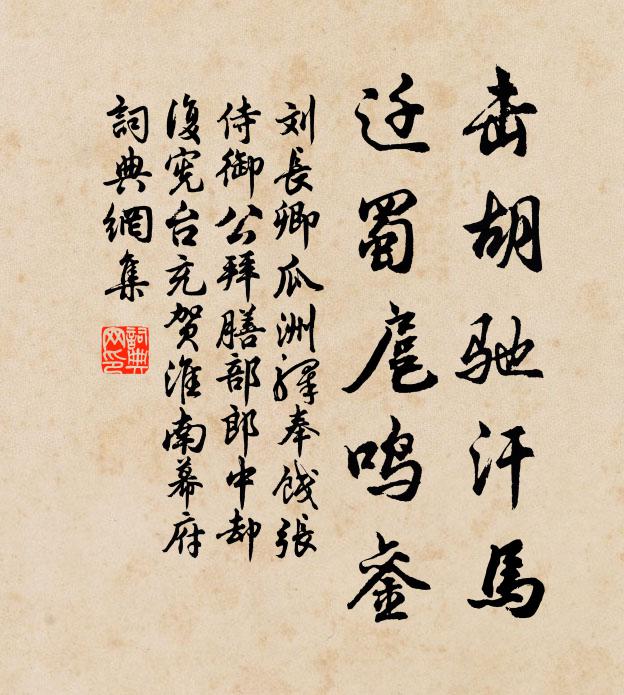 击胡驰汗馬
迁蜀扈鸣銮
刘長卿瓜洲驛奉饯張
侍御公拜膳部郎中却
復宪台充贺淮南幕府
詞典網集
詞典网印